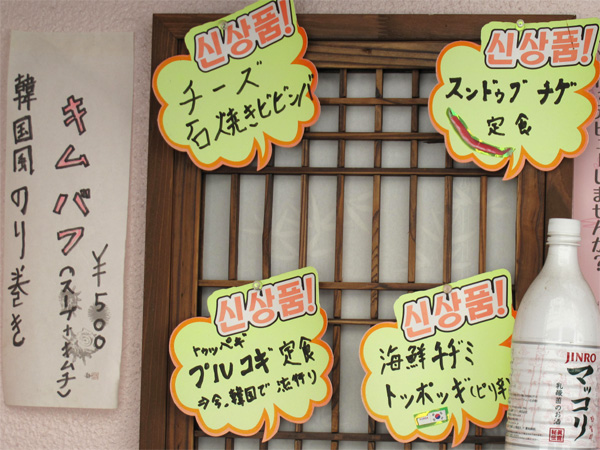 韓国風のり巻き
キムパプ
(スープ+キムチ)
¥500
신상품!
チーズ
石焼きビビンバ
신상품!
スンドゥブチゲ
定食
신상품!
トゥッペギ
プルコギ定食
今、韓国で流行り
신상품!
海鮮チヂミ
トッポッギ(ピリ辛)
しませんか?
JINRO
マッコリ
乳酸菌のお酒